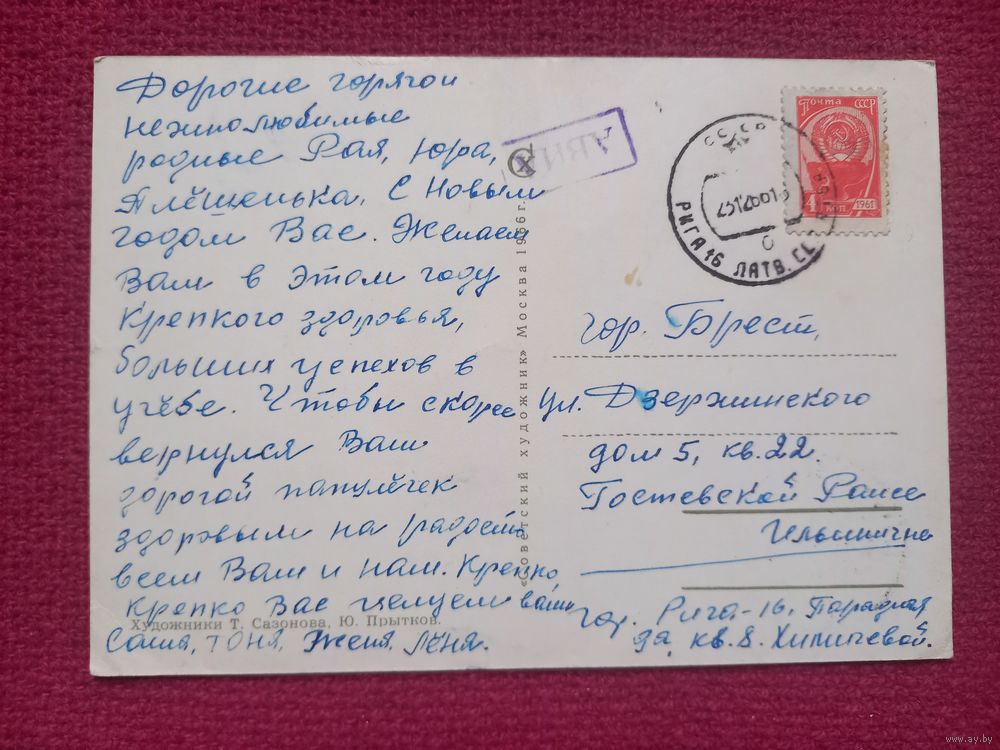 Дорогие горячо
нежнолюбимые
родные Рая, Юра,
Алёшенька, С Новым
годом Вас. Желаем
Вам в этом году
крепкого здоровья,
больших успехов в
учёбе. Чтобы скорее
вернулся Ваш
дорогой папулёчек
здоровым на радость
всем Вам и нам. Крепко,
крепко Вас целуем ваши
Саша, Тоня, Женя, Лёня.
Художники Т. Сазонова, Ю. Прытков.
«Советский художник» Москва 1966 г.
АВИА
Почта СССР
4 коп 1961
РИГА 16 ЛАТВ. СС
гор. Брест,
ул. Дзержинского
дом 5, кв. 22.
Гостевской Раисе
Ильиничне
гор. Рига-16, Парадная
кв. 8. Химичевой.
www.ay.by